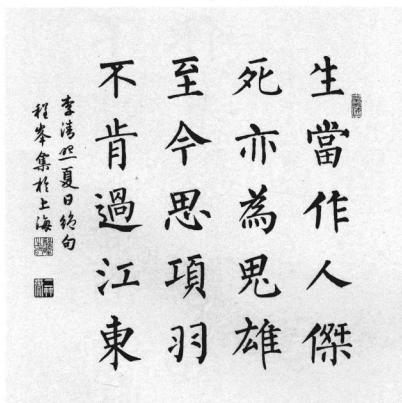 生當作人傑
死亦為鬼雄
至今思項羽
不肯過江東
李清照夏日絶句
程峯集於上海